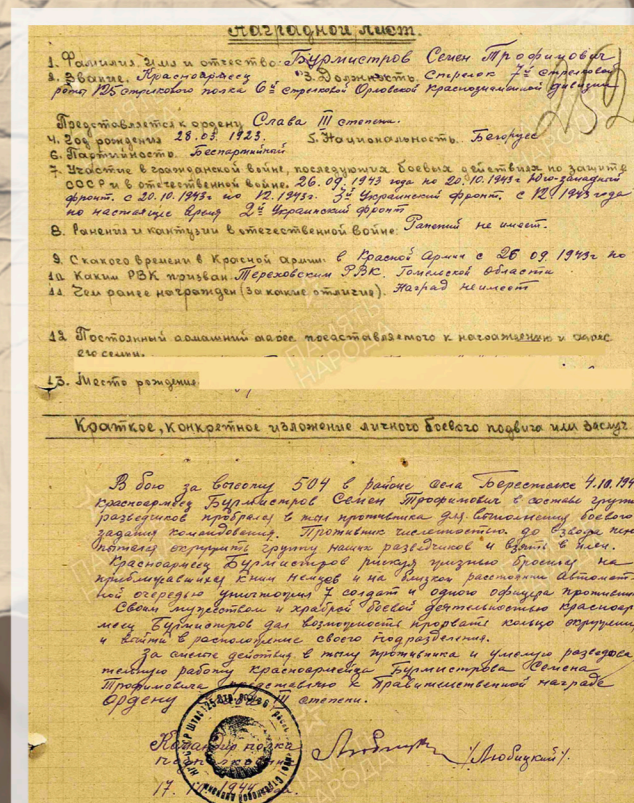 Наградной лист.
1. Фамилия, имя и отчество: Бурмистров Семен Трофимович
2. Звание. Красноармеец 3. Должность. Стрелок 7й стрелковой
роты 125 стрелкового полка 6й стрелковой Орловской Краснознаменной дивизии
252
Представляется к ордену Слава III степени.
4. Год рождения 28.03.1923. 5. Национальность. Белорус
6. Партийность. Беспартийный
7. Участие в гражданской войне, последующих боевых действиях по защите
СССР и в отечественной войне. 26.09.1943 года по 20.10.1943г Юго-западный
фронт. с 20.10.1943г по 12.1943г. 3й Украинский фронт. с 12.1943 года
по настоящее время 2й Украинский фронт
8. Ранения и контузии в отечественной войне: Ранений не имеет.
9. С какого времени в Красной армии: в Красной Армии с 26 09.1943г по
10. Каким РВК призван Тереховским РВК. Гомельской области
11. Чем ранее награжден (за какие отличие). Наград не имеет
12. Постоянный домашний адрес представляемого к награжению и адрес
его семьи.
13. Место рождения
Краткое, конкретное изложение личного боевого подвига или заслуг
В бою за высоту 504 в районе села 4.10.194
красноармеец Бурмистров Семен Трофимович в составе групп
разведчиков пробрался в тыл противника для выполнения боевого
задания командования. Противник численностью до взвода
пытался окружить группу наших разведчиков и взять в плен.
Красноармеец Бурмистров рискуя жизнью бросился на
приблизившихся к ним немцев и на близком расстоянии автомат-
ной очередью уничтожил 7 солдат и одного офицера противни
Своим мужеством и храброй боевой деятельностью красноар
меец Бурмистров дал возможность прорвать кольцо окружени
и выйти в расположение своего подразделения.
За смелые действия в тылу противника и умелую разведова
тельную работу красноармейца Бурмистрова Семена
Трофимовича представляю к Правительственной награде
Ордену III степени.
Командир полка
/Любицкий/.
17. 1944
ПАМЯТЬ
НАРОДА